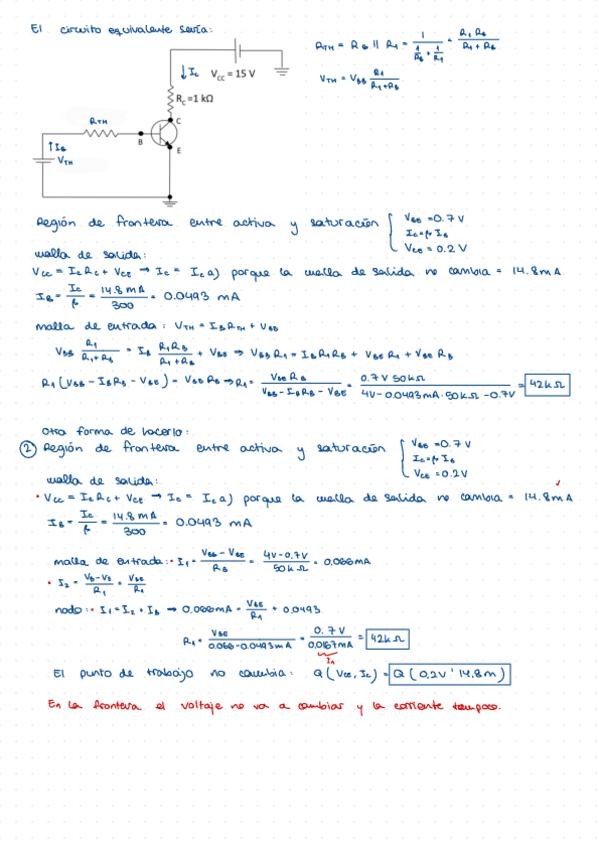 El circuito equivalente sería:
R_TH = R_B || R_1 = 1 / (1/R_B + 1/R_1) = R_1 R_B / (R_1 + R_B)
V_TH = V_BB R_1 / (R_1 + R_B)
↓I_C V_CC = 15 V
R_C = 1 kΩ
R_TH
C
B
E
↑I_B
V_TH
Región de frontera entre activa y saturación { V_BE = 0.7 V
I_C = β I_B
V_CE = 0.2 V
malla de salida:
V_CC = I_C R_C + V_CE → I_C = I_C a) porque la malla de salida no cambia = 14.8 mA
I_B = I_C / β = 14.8 mA / 300 = 0.0493 mA
malla de entrada: V_TH = I_B R_TH + V_BE
V_BB R_1 / (R_1 + R_B) = I_B R_1 R_B / (R_1 + R_B) + V_BE → V_BB R_1 = I_B R_1 R_B + V_BE R_1 + V_BE R_B
R_1 (V_BB - I_B R_B - V_BE) = V_BE R_B → R_1 = V_BE R_B / (V_BB - I_B R_B - V_BE) = 0.7 V 50 kΩ / (4V - 0.0493 mA · 50 kΩ - 0.7V) = 42 kΩ
otra forma de hacerlo:
② Región de frontera entre activa y saturación { V_BE = 0.7 V
I_C = β I_B
V_CE = 0.2 V
malla de salida:
• V_CC = I_C R_C + V_CE → I_C = I_C a) porque la malla de salida no cambia = 14.8 mA ✓
I_B = I_C / β = 14.8 mA / 300 = 0.0493 mA
malla de entrada: • I_1 = (V_BB - V_BE) / R_B = (4V - 0.7V) / 50 kΩ = 0.066 mA
• I_2 = (V_B - V_E) / R_1 = V_BE / R_1
nodo: • I_1 = I_2 + I_B → 0.066 mA = V_BE / R_1 + 0.0493
R_1 = V_BE / (0.066 - 0.0493 mA) = 0.7 V / 0.0167 mA = 42 kΩ
I_1
El punto de trabajo no cambia: Q (V_CE, I_C) = Q (0.2V ' 14.8m)
En la frontera el voltaje no va a cambiar y la corriente tampoco.